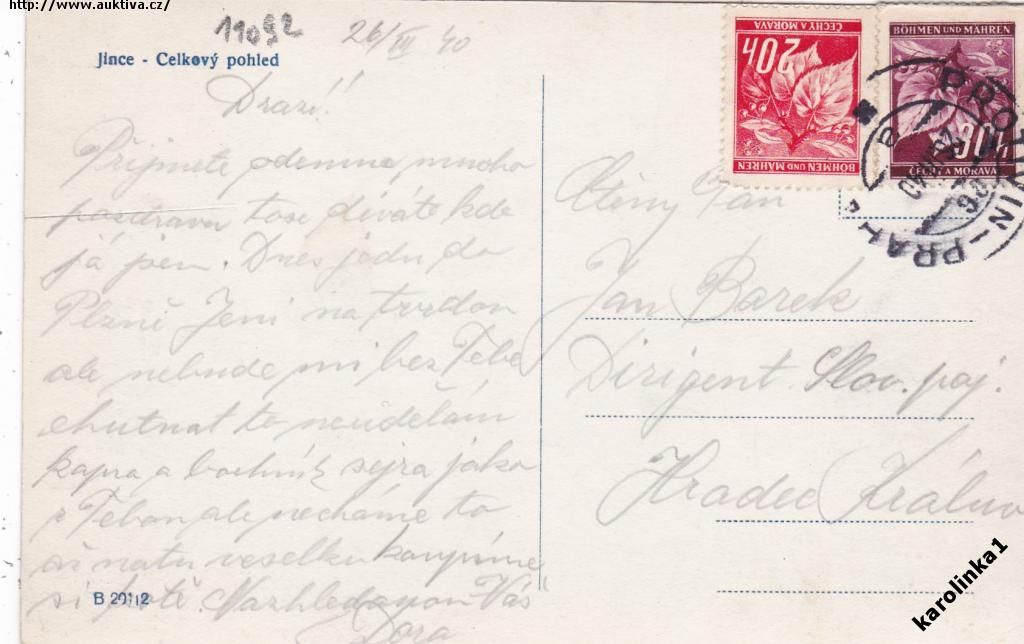 http://www.auktiva.cz/
11092
26/III 40
Jince - Celkový pohled
Drazí!
Přijmete odemne mnoho
pozdravu to se díváte kde
já jsem. Dnes jedu do
Plzně Jeni na tvrdou
ale nebude mi bez Tebe
chutnat to neudělám
kapra a bochník sejra jako
s Tebou ale necháme to
až na tu veselku koupíme
si ještě. Nazhledanou Vás
Dora
B 20112
20h
ČECHY A MORAVA
BÖHMEN UND MÄHREN
BÖHMEN UND MÄHREN
30h
ČECHY A MORAVA
PRAHA
Ctěný Pan
Jan Barek
Dirigent. Slov. poj.
Hradec Králov
karolinka1